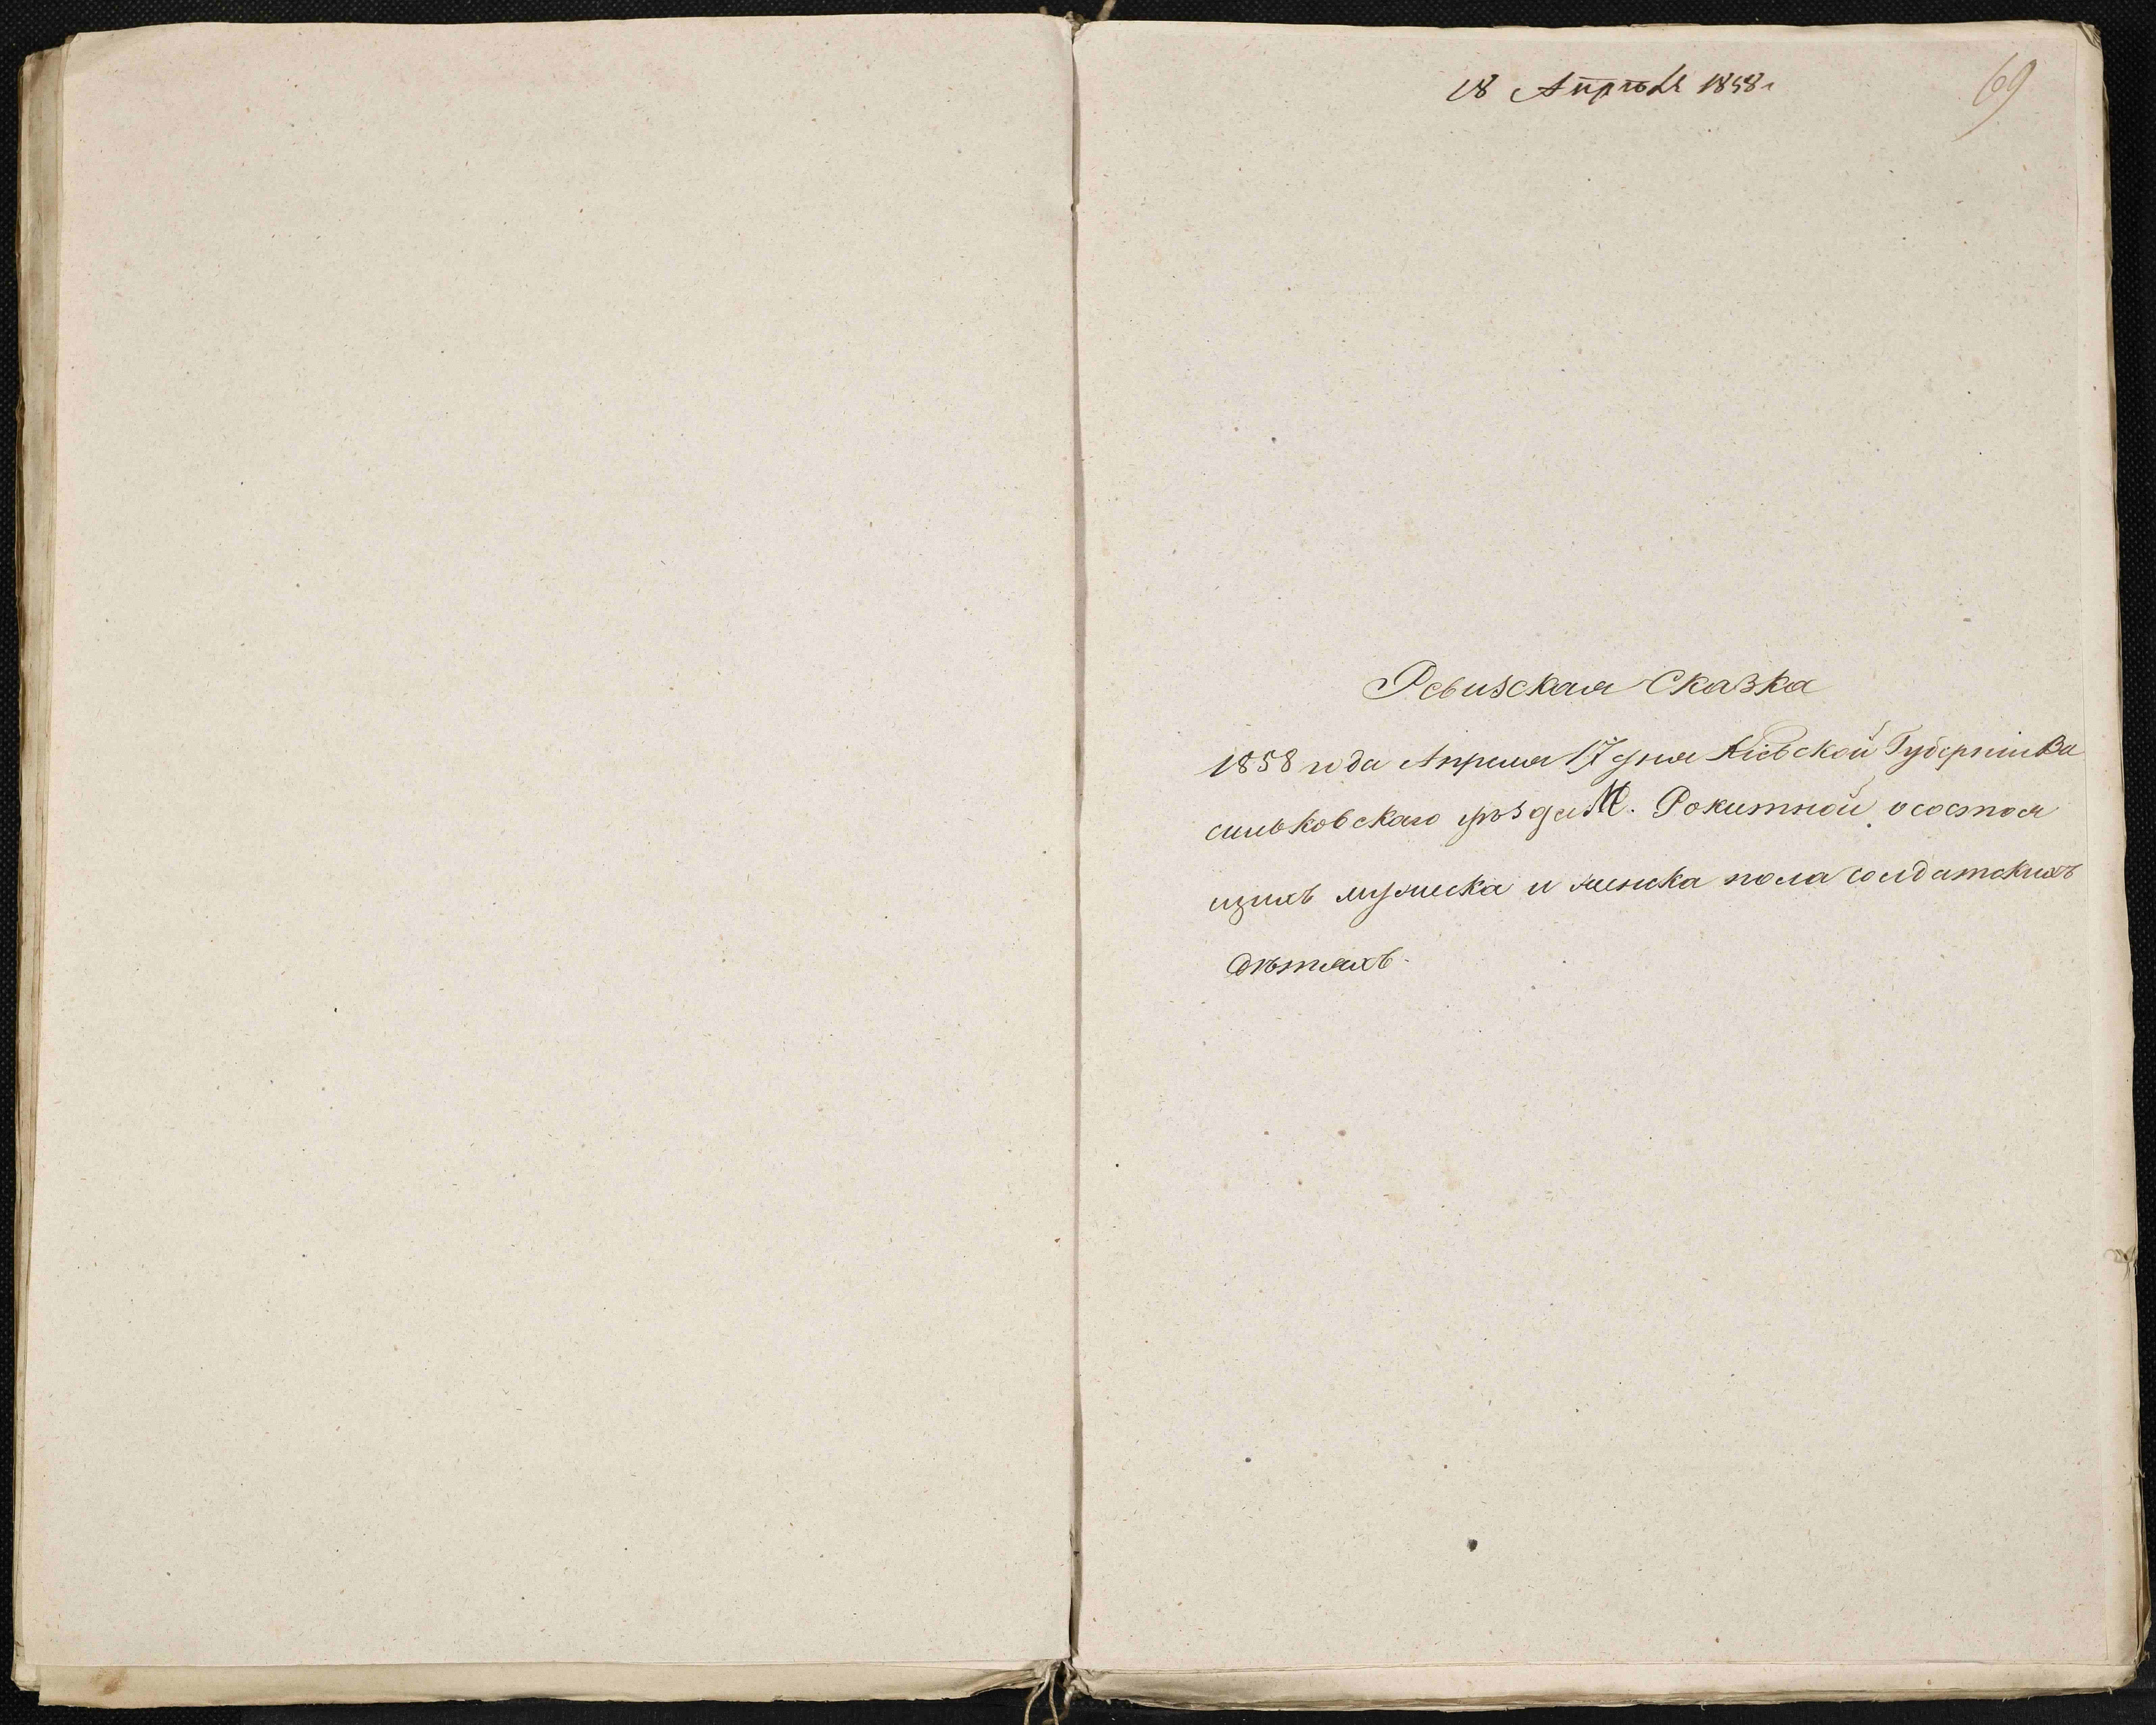 18 Апрѣля 1858 г
69
Ревизская Сказка
1858 года Апреля 17 дня Кіевской Губерніи Ва
сильковскаго уѣзда М. Рокитной, о состоя
щихъ мужеска и женска пола солдатскихъ
дѣтяхъ.